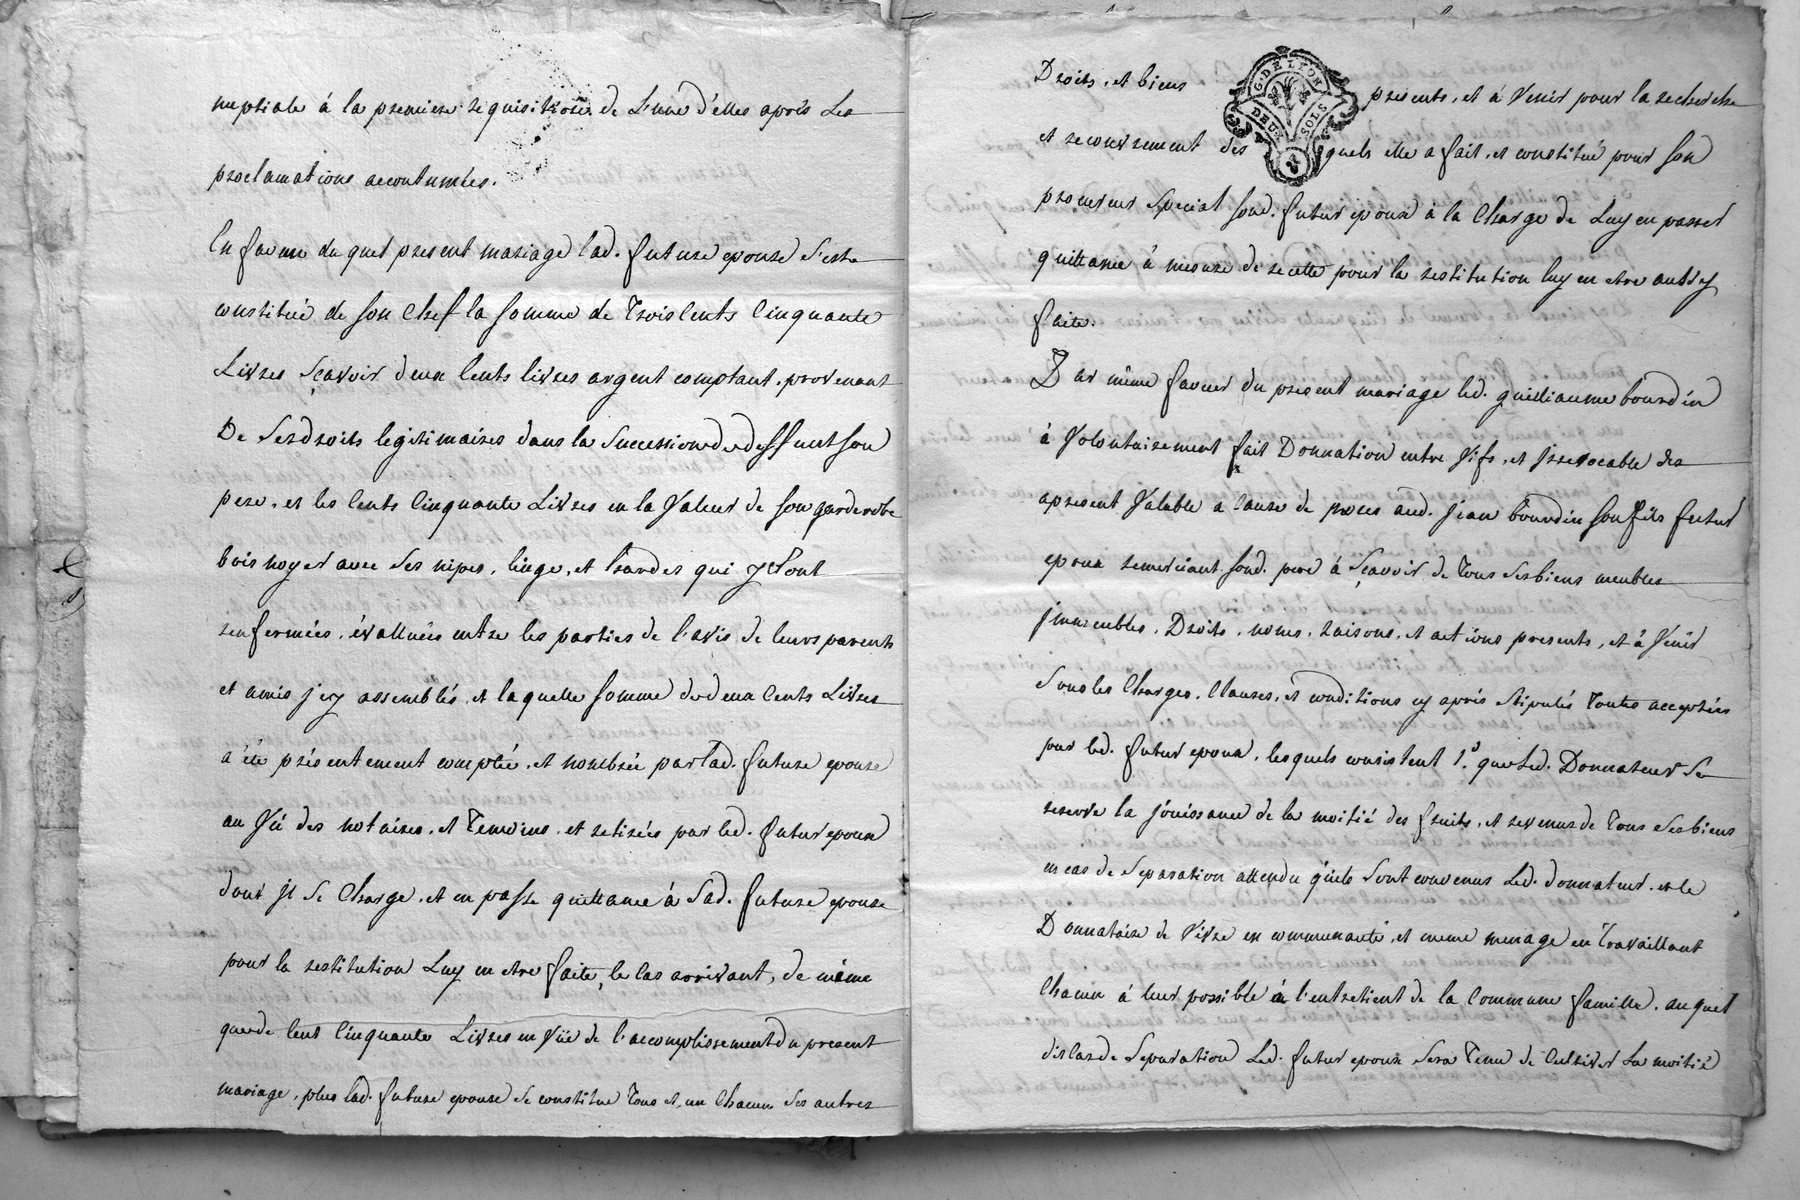 nuptiale á la premiere requisitione de L'une d'elles aprés Les
proclamations accoutumées.
En faveur du quel present mariage lad. future epouse s'est
constituée de son Chef la somme de Trois Cents Cinquante
Livres Sçavoir deux Cents livres argent comptant, provenant
De Ses droits legitimaires dans la Succession de deffunt son
pere, et les Cents Cinquante Livres en la Valeur de son garderobe
bois noyer avec Ses nipes, linge, et hardes qui y Sont
renfermées, évalluées entre les parties de l'avis de leurs parents
et amis j'cy assemblés, et laquelle somme de deux Cents Livres
a été présentement comptée, et nombrée par lad. future epouse
au Vû des notaires, et Temoins, et retirées par led. futur epoux
dont jl Se Charge, et en passe quittance á Sad. future epouse
pour la restitution Luy en etre faite, le Cas arrivant, de même
que de Cent Cinquante Livres en Vüe de l'accomplissement du present
mariage, plus lad. future epouse Se constitue Tous et, un Chacun Ses autres
Droits, et biens presents, et á Venir pour la recherche
G. DE LYON
DEUX SOLS
et recouvrement des quels elle a fait, et constitué pour son
procureur Special sond. futur epoux á la Charge de Luy en passer
quittance á mesure de recette pour la restitution luy en etre aussy
faite.
Et ar même faveur du present mariage led. guilliaume bourdin
á Volontairement fait Donnation entre Vifs, et jrrevocable des
apresent Valable a Cause de noces aud. jean bourdin son fils futur
epoux remerciant sond. pere á Sçavoir de Tous Ses biens meubles
jmmeubles, Droits, noms, raisons, et actions presents, et á Venir
Sous les Charges, Clauses, et conditions cy aprés Stipulés Toutes acceptées
par led. futur epoux, lesquels consistent 1.° que Led. Donnateur Se
reserve la jouissance de la moitié des fruits, et revenus de Tous Ses biens
en cas de Separation attendu qu'ils Sont convenus Led. donnateur, et le
Donnataire de Vivre en communauté, et meme menage en Travaillant
Chacun á leur possible á l'entretient de la Commune famille, auquel
dis Cas de Separation Led. futur epoux Sera Tenu de Cultiver La moitié